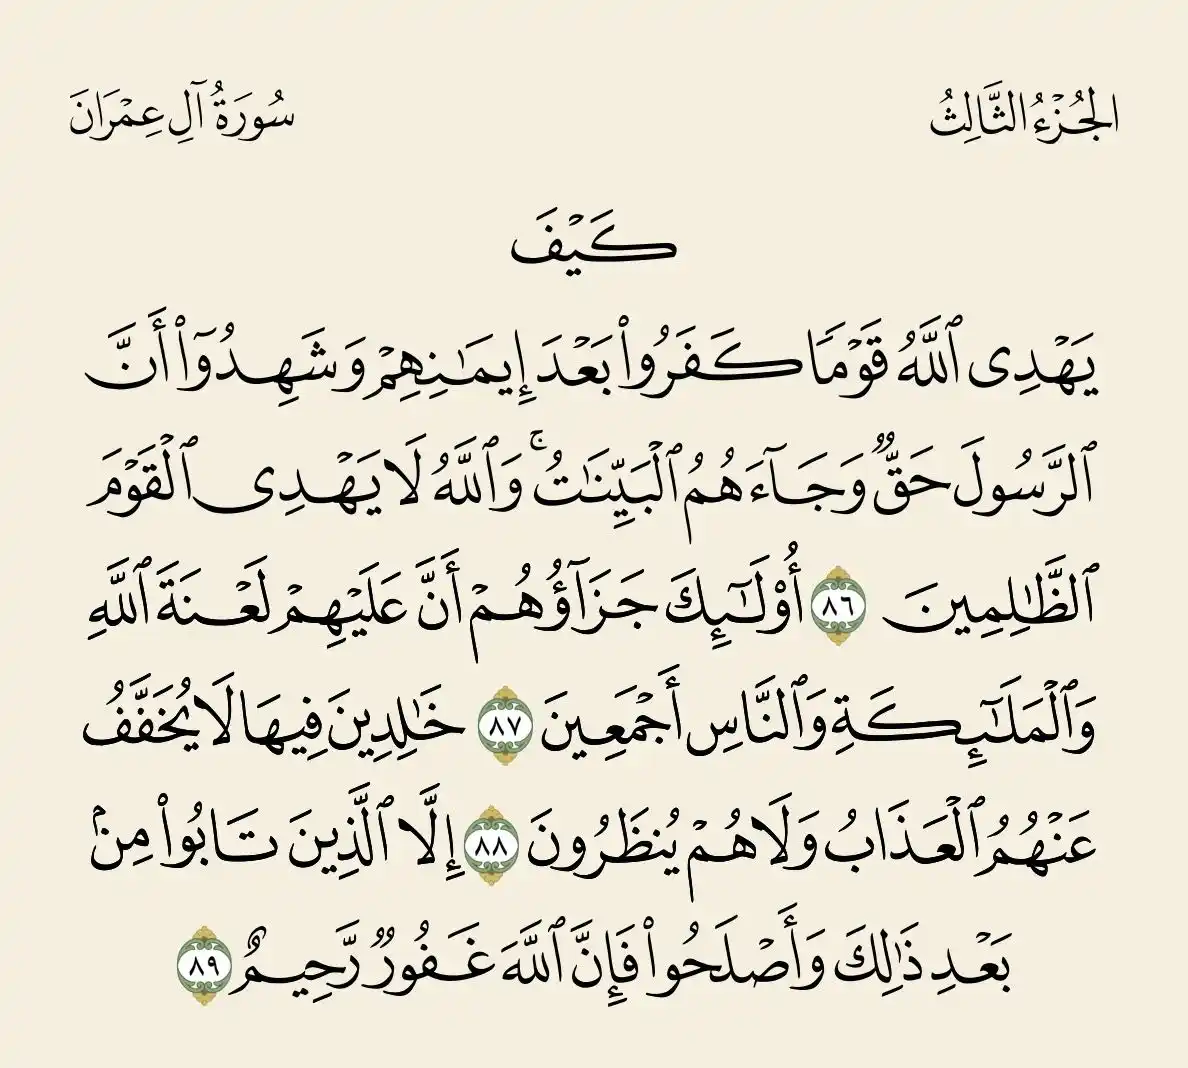 الجُزْءُ الثَّالِثُ
سُورَةُ آلِ عِمْرَانَ
كَيْفَ
يَهْدِى ٱللَّهُ قَوْمًا كَفَرُوا۟ بَعْدَ إِيمَـٰنِهِمْ وَشَهِدُوٓا۟ أَنَّ
ٱلرَّسُولَ حَقٌّ وَجَآءَهُمُ ٱلْبَيِّنَـٰتُ ۚ وَٱللَّهُ لَا يَهْدِى ٱلْقَوْمَ
ٱلظَّـٰلِمِينَ ٨٦ أُو۟لَـٰٓئِكَ جَزَآؤُهُمْ أَنَّ عَلَيْهِمْ لَعْنَةَ ٱللَّهِ
وَٱلْمَلَـٰٓئِكَةِ وَٱلنَّاسِ أَجْمَعِينَ ٨٧ خَـٰلِدِينَ فِيهَا لَا يُخَفَّفُ
عَنْهُمُ ٱلْعَذَابُ وَلَا هُمْ يُنظَرُونَ ٨٨ إِلَّا ٱلَّذِينَ تَابُوا۟ مِنۢ
بَعْدِ ذَٰلِكَ وَأَصْلَحُوا۟ فَإِنَّ ٱللَّهَ غَفُورٌ رَّحِيمٌ ٨٩